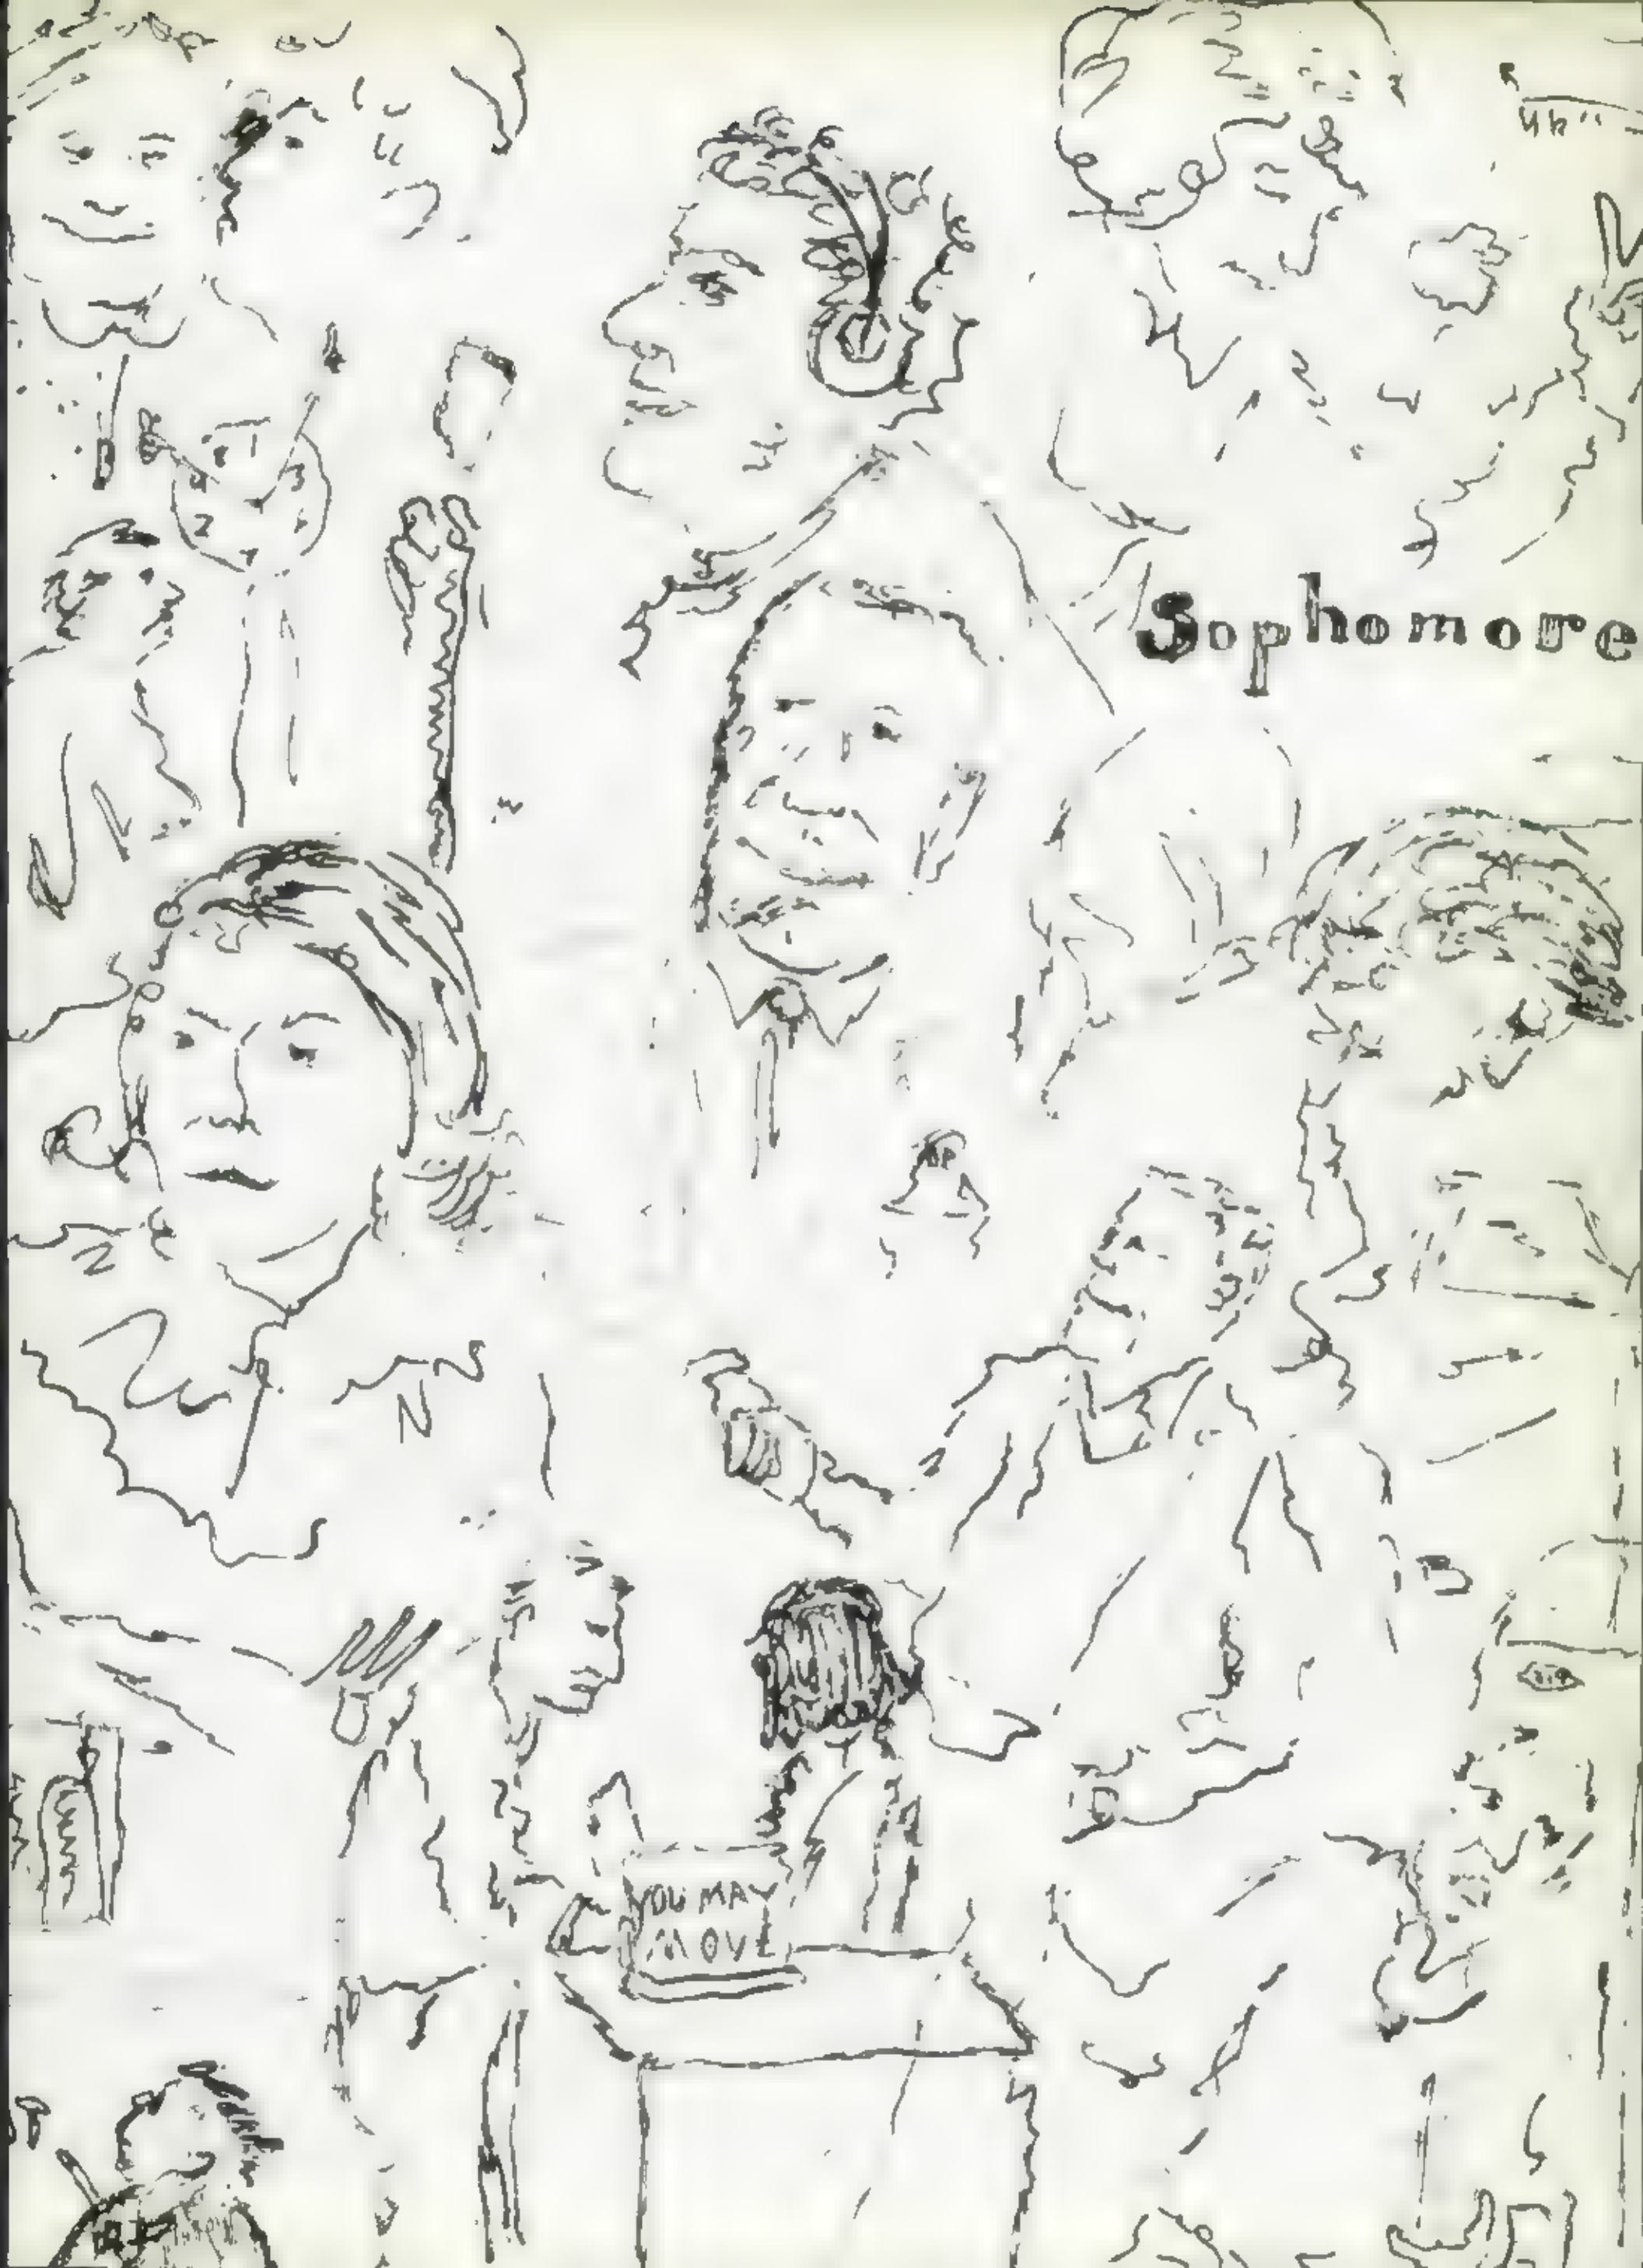 Sophomore
YOU MAY
MOVE